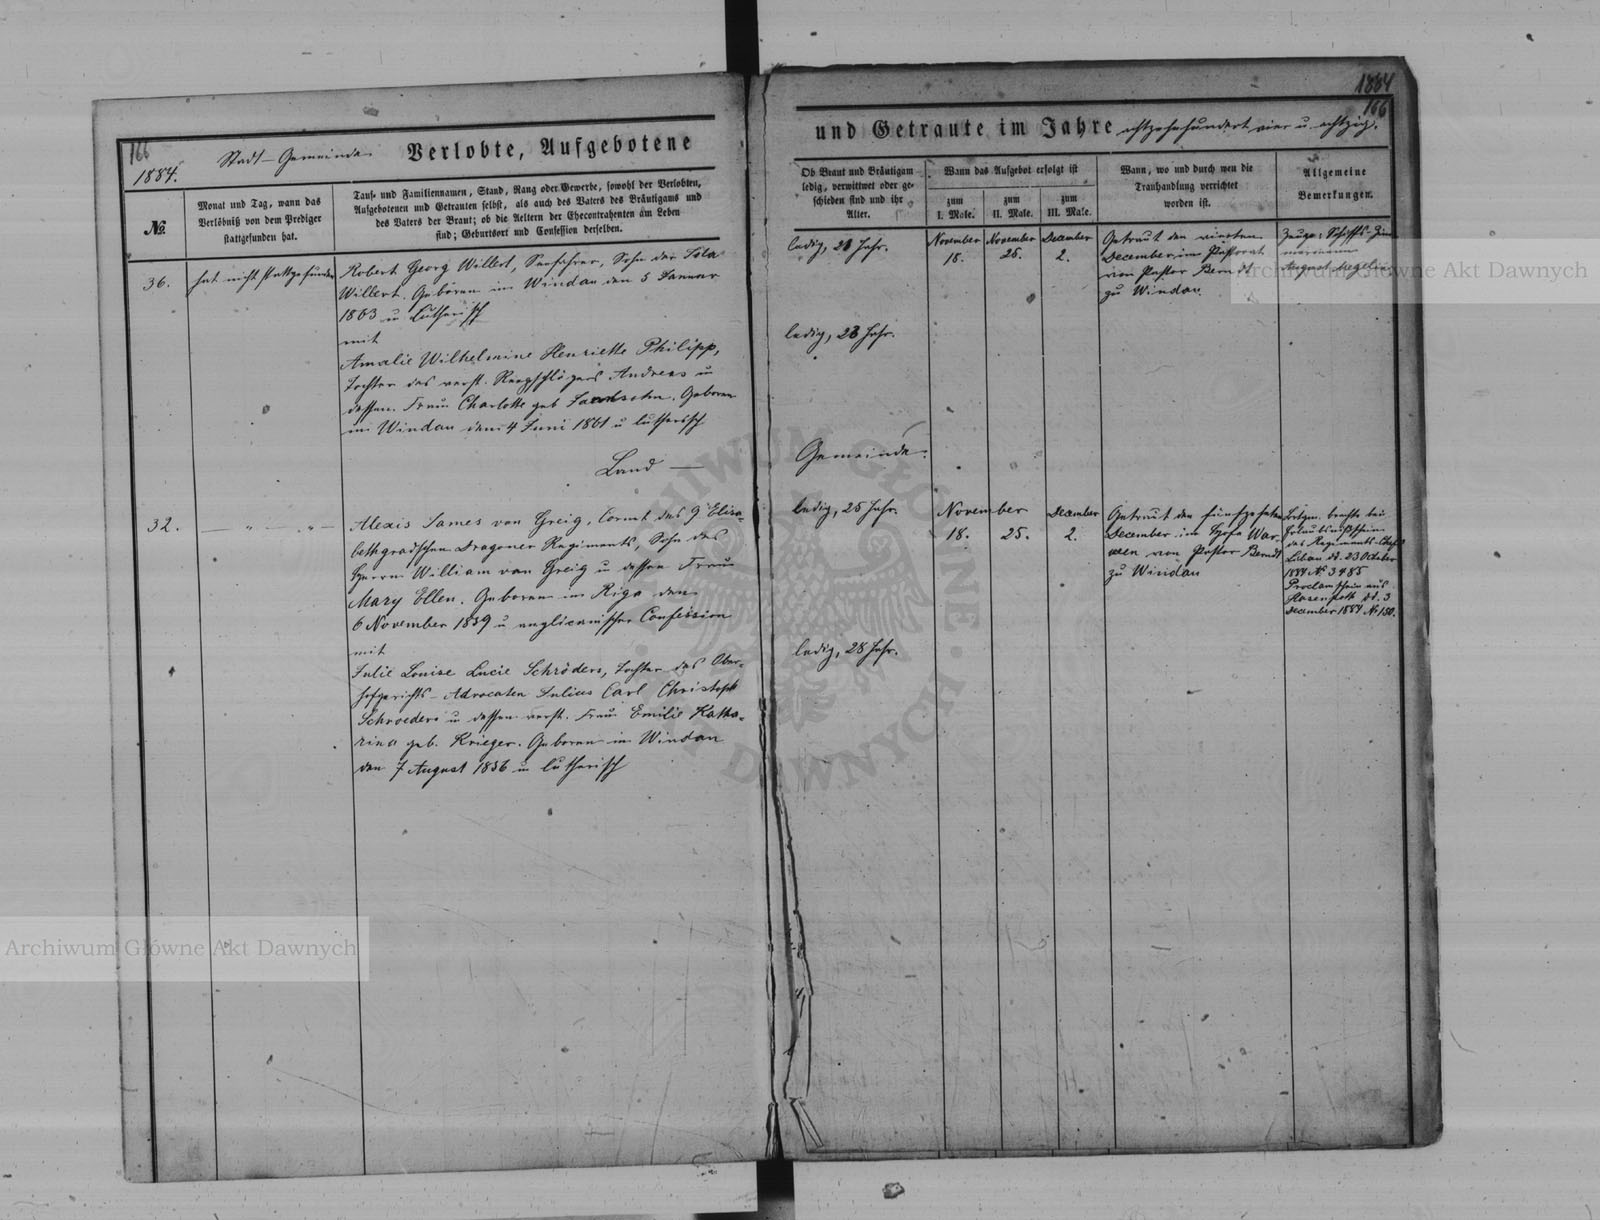 166
1884.
Stadt-Gemeinde.
Verlobte, Aufgebotene
№
Monat und Tag, wann das
Verlöbniß von dem Prediger
stattgefunden hat.
Tauf- und Familiennamen, Stand, Rang oder Gewerbe, sowohl der Verlobten,
Aufgebotenen und Getrauten selbst, als auch des Vaters des Bräutigams und
des Vaters der Braut; ob die Aeltern der Ehecontrahenten am Leben
sind; Geburtsort und Confession derselben.
36.
hat nicht stattgefunden
Robert Georg Willert, Seefahrer, Sohn der Lola
Willert. Geboren in Windau den 5 Januar
1863 u lutherisch
mit
Amalie Wilhelmine Henriette Philipp,
Tochter des verst. Andreas u
dessen Frau Charlotte geb Jannsohn. Geboren
in Windau den 4 Juni 1861 u lutherisch
Land —
32.
— " — " —
Alexis James von Greig, Cornet des 9 Elisa-
bethgradschen Dragoner Regiments, Sohn des
Herrn William von Greig u dessen Frau
Mary Ellen. Geboren in Riga den
6 November 1859 u anglicanischer Confession
mit
Julie Louise Lucie Schröders, Tochter des Ober-
hofgerichts-Advocaten Julius Carl Christoph
Schroeders u dessen verst. Frau Emilie Katha-
rina geb. Krieger. Geboren in Windau
den 7 August 1856 u lutherisch
1884
166
und Getraute im Jahre achtzehnhundert vier u achtzig.
Ob Braut und Bräutigam
ledig, verwittwet oder ge-
schieden sind und ihr
Alter.
Wann das Aufgebot erfolgt ist
zum
I. Male.
zum
II. Male.
zum
III. Male.
Wann, wo und durch wen die
Trauhandlung verrichtet
worden ist.
Allgemeine
Bemerkungen.
ledig, 21 Jahr.
November
18.
November
25.
December
2.
Getraut den vierten
December im Pastorat
von Pastor Berndt
zu Windau.
Zeuge: Schiffs-Zim
mermann
August
ledig, 23 Jahr.
Gemeinde.
ledig, 25 Jahr.
November
18. 25.
December
2.
Getraut den fünfzehnten
December im Hofe War-
wen von Pastor Berndt
zu Windau
brachte bei
Erlaubnißschein
des Regiments-Chefs
Libau dd. 23 October
1884 № 3485
Proclamschein aus
dd. 3
December 1884 № 150.
ledig, 28 Jahr.
ARCHIWUM GŁÓWNE AKT DAWNYCH
Archiwum Główne Akt Dawnych
Archiwum Główne Akt Dawnych